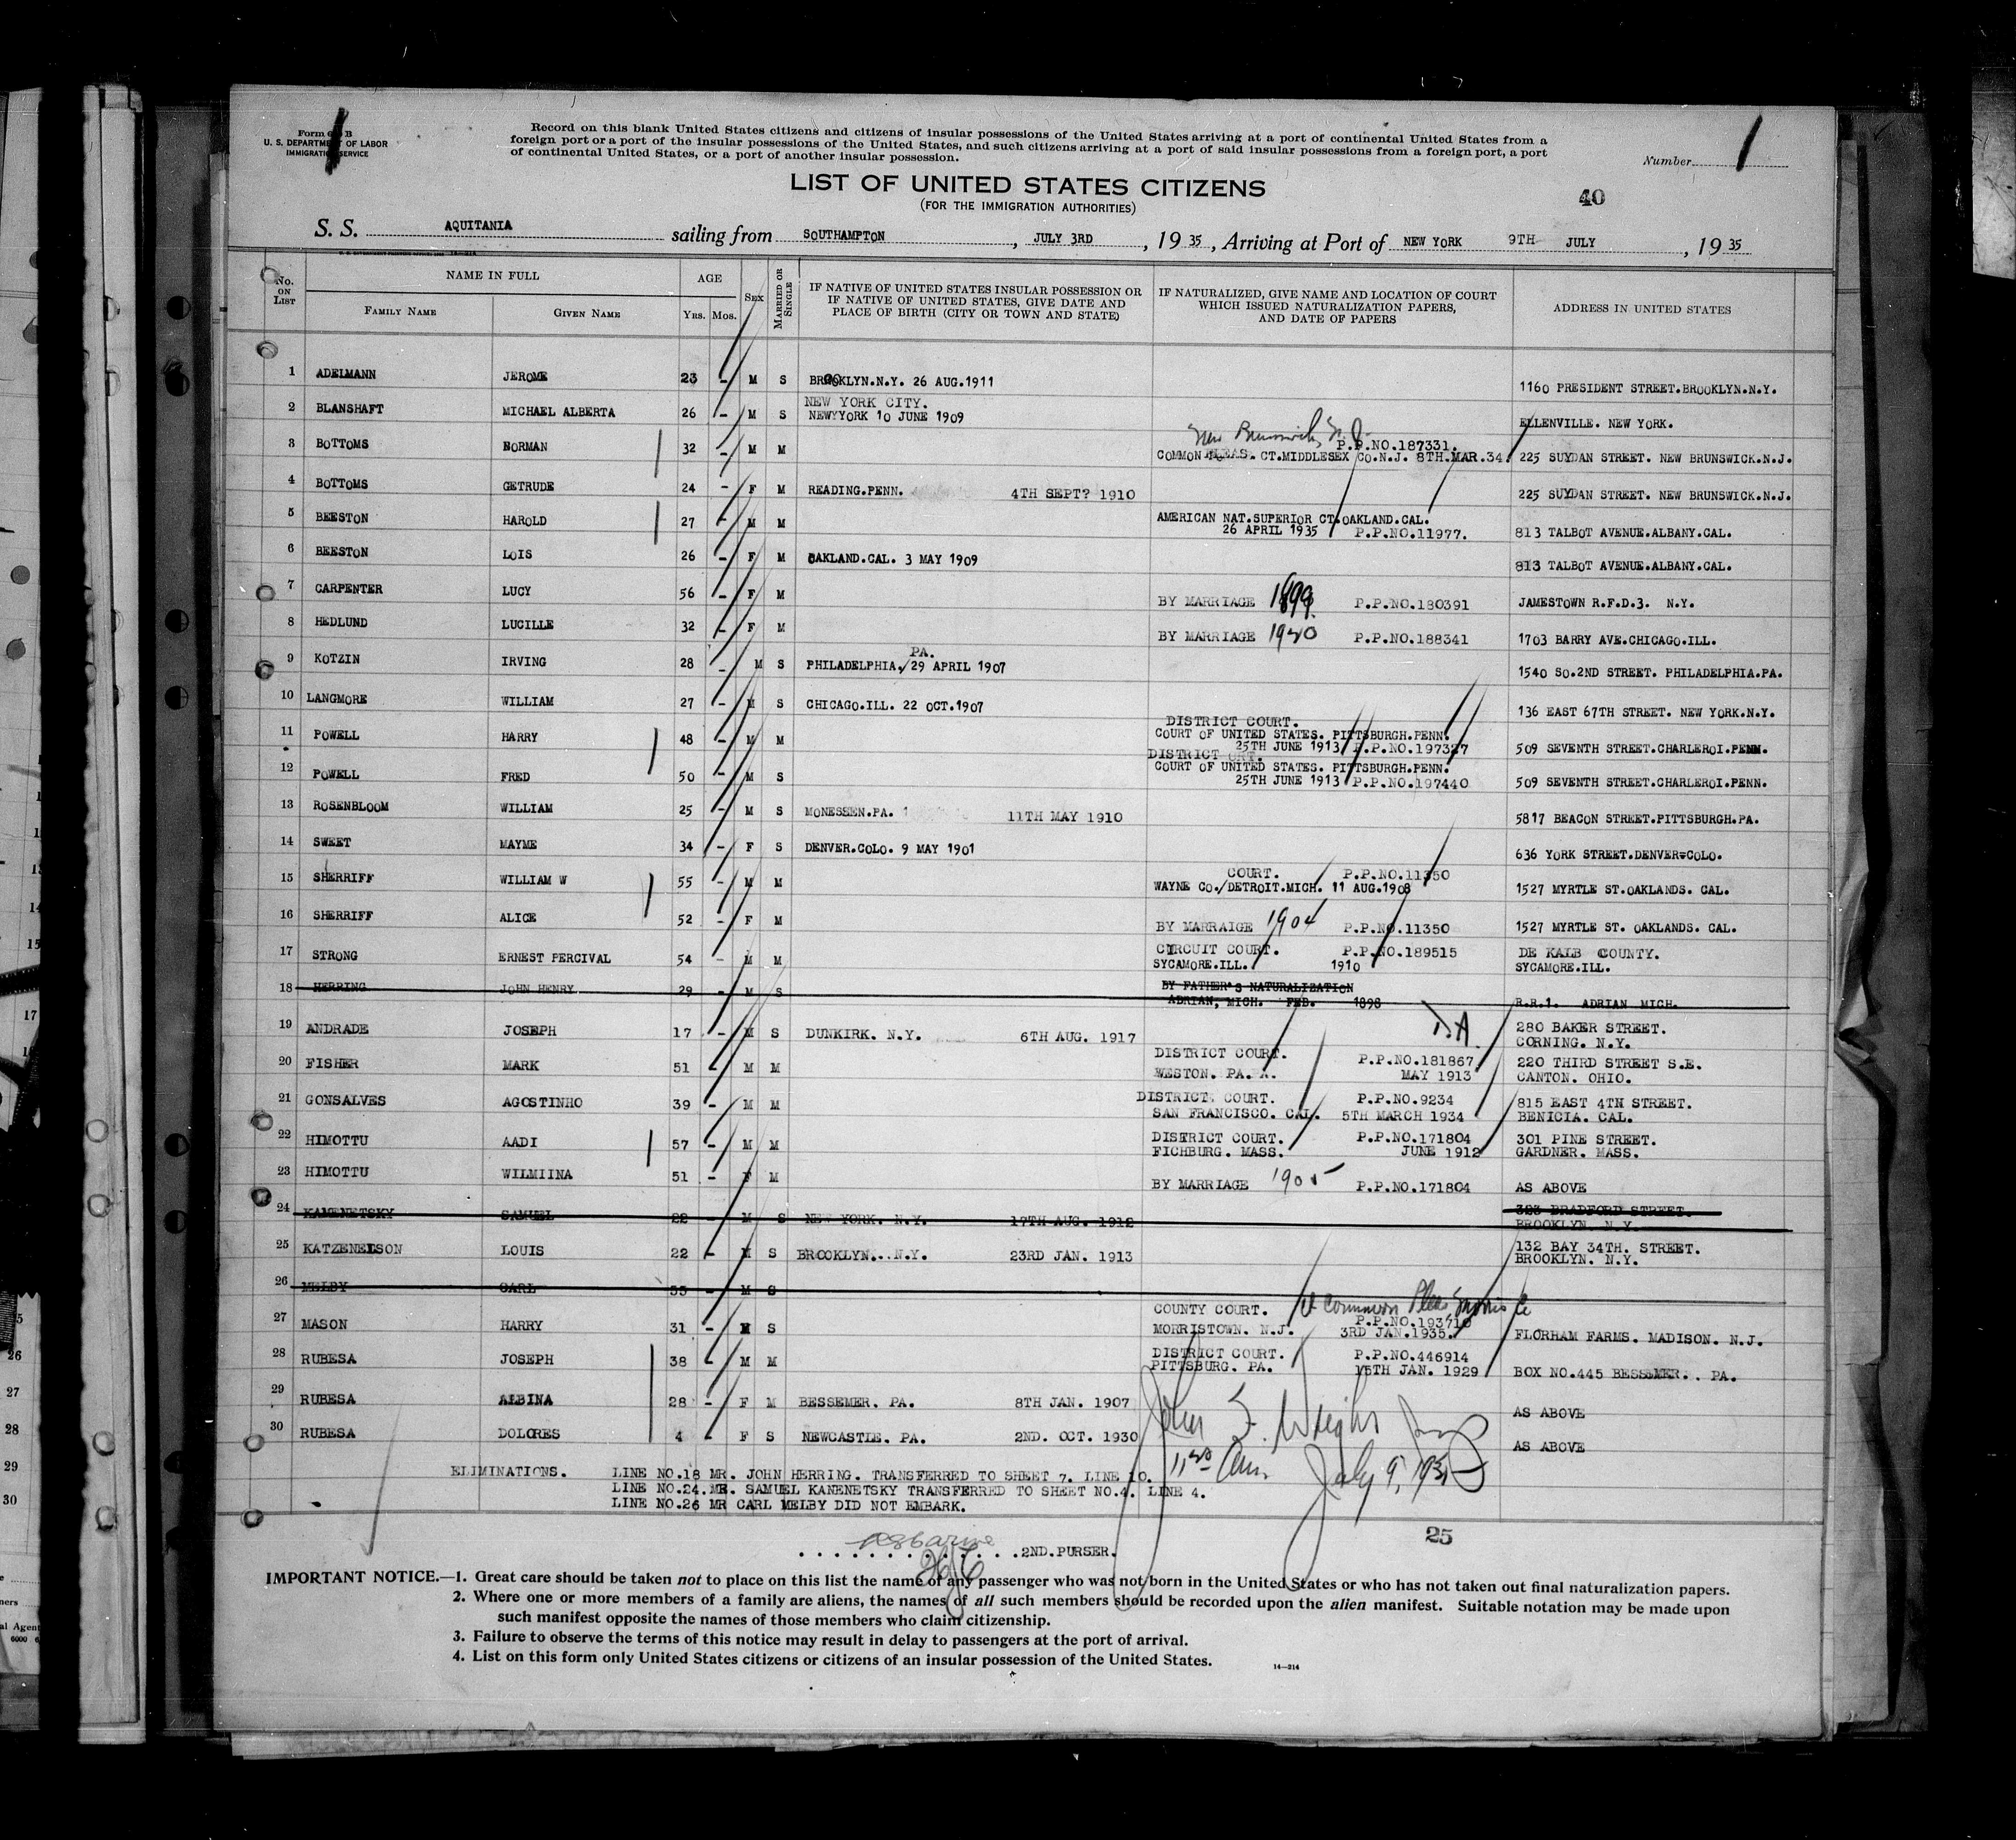 Form 630 B
U. S. DEPARTMENT OF LABOR
IMMIGRATION SERVICE
Record on this blank United States citizens and citizens of insular possessions of the United States arriving at a port of continental United States from a
foreign port or a port of the insular possessions of the United States, and such citizens arriving at a port of said insular possessions from a foreign port, a port
of continental United States, or a port of another insular possession.
Number 1
LIST OF UNITED STATES CITIZENS
(FOR THE IMMIGRATION AUTHORITIES)
40
S. S. AQUITANIA sailing from SOUTHAMPTON, JULY 3RD, 19 35, Arriving at Port of NEW YORK 9TH JULY, 19 35
No. ON LIST
NAME IN FULL
FAMILY NAME
GIVEN NAME
AGE
YRS. MOS.
SEX
MARRIED OR SINGLE
IF NATIVE OF UNITED STATES INSULAR POSSESSION OR
IF NATIVE OF UNITED STATES, GIVE DATE AND
PLACE OF BIRTH (CITY OR TOWN AND STATE)
IF NATURALIZED, GIVE NAME AND LOCATION OF COURT
WHICH ISSUED NATURALIZATION PAPERS,
AND DATE OF PAPERS
ADDRESS IN UNITED STATES
1 ADELMANN JEROME 23 - M S BROOKLYN.N.Y. 26 AUG.1911 1160 PRESIDENT STREET.BROOKLYN.N.Y.
NEW YORK CITY.
2 BLANSHAFT MICHAEL ALBERTA 26 - M S NEWYYORK 10 JUNE 1909 ELLENVILLE. NEW YORK.
New Brunswick, N. J. P.P.NO.187331.
3 BOTTOMS NORMAN 32 - M M COMMON PLEAS. CT.MIDDLESEX CO.N.J. 8TH.MAR.34 225 SUYDAN STREET. NEW BRUNSWICK.N.J.
4 BOTTOMS GETRUDE 24 - F M READING.PENN. 4TH SEPT? 1910 225 SUYDAN STREET. NEW BRUNSWICK.N.J.
5 BEESTON HAROLD 27 - M M AMERICAN NAT.SUPERIOR CT.OAKLAND.CAL.
26 APRIL 1935 P.P.NO.11977. 813 TALBOT AVENUE.ALBANY.CAL.
6 BEESTON LOIS 26 - F M OAKLAND.CAL. 3 MAY 1909 813 TALBOT AVENUE.ALBANY.CAL.
7 CARPENTER LUCY 56 - F M BY MARRIAGE 1899 P.P.NO.180391 JAMESTOWN R.F.D.3. N.Y.
8 HEDLUND LUCILLE 32 - F M BY MARRIAGE 1920 P.P.NO.188341 1703 BARRY AVE.CHICAGO.ILL.
PA.
9 KOTZIN IRVING 28 - M S PHILADELPHIA./29 APRIL 1907 1540 SO.2ND STREET. PHILADELPHIA.PA.
10 LANGMORE WILLIAM 27 - M S CHICAGO.ILL. 22 OCT.1907 136 EAST 67TH STREET. NEW YORK.N.Y.
DISTRICT COURT.
11 POWELL HARRY 48 - M M COURT OF UNITED STATES. PITTSBURGH.PENN.
25TH JUNE 1913 P.P.NO.197327 509 SEVENTH STREET.CHARLEROI.PENN.
DISTRICT CRT.
12 POWELL FRED 50 - M S COURT OF UNITED STATES. PITTSBURGH.PENN.
25TH JUNE 1913 P.P.NO.197440 509 SEVENTH STREET.CHARLEROI.PENN.
13 ROSENBLOOM WILLIAM 25 - M S MONESSEN.PA. 11TH MAY 1910 5817 BEACON STREET.PITTSBURGH.PA.
14 SWEET MAYME 34 - F S DENVER.COLO. 9 MAY 1901 636 YORK STREET.DENVER=COLO.
COURT. P.P.NO.11350
15 SHERRIFF WILLIAM W 55 - M M WAYNE CO./DETROIT.MICH. 11 AUG.1908 1527 MYRTLE ST.OAKLANDS. CAL.
16 SHERRIFF ALICE 52 - F M BY MARRAIGE 1904 P.P.NO.11350 1527 MYRTLE ST. OAKLANDS. CAL.
17 STRONG ERNEST PERCIVAL 54 - M M CIRCUIT COURT. P.P.NO.189515 DE KALB COUNTY.
SYCAMORE.ILL. 1910 SYCAMORE.ILL.
18 HERRING JOHN HENRY 29 - M S BY FATHER'S NATURALIZATION
ADRIAN, MICH. FEB. 1898 R.R.1. ADRIAN MICH.
19 ANDRADE JOSEPH 17 - M S DUNKIRK. N.Y. 6TH AUG. 1917 D.A. 280 BAKER STREET.
CORNING. N.Y.
20 FISHER MARK 51 - M M DISTRICT COURT. P.P.NO.181867 220 THIRD STREET S.E.
WESTON. PA. MAY 1913 CANTON. OHIO.
21 GONSALVES AGOSTINHO 39 - M M DISTRICT. COURT. P.P.NO.9234 815 EAST 4TH STREET.
SAN FRANCISCO. CAL. 5TH MARCH 1934 BENICIA. CAL.
22 HIMOTTU AADI 57 - M M DISTRICT COURT. P.P.NO.171804 301 PINE STREET.
FICHBURG. MASS. JUNE 1912 GARDNER. MASS.
23 HIMOTTU WILMIINA 51 - F M BY MARRIAGE 1905 P.P.NO.171804 AS ABOVE
24 KAMENETSKY SAMUEL 22 - M S NEW YORK. N.Y. 17TH AUG. 1912 323 BRADFORD STREET.
BROOKLYN. N.Y.
25 KATZENELSON LOUIS 22 - M S BROOKLYN...N.Y. 23RD JAN. 1913 132 BAY 34TH. STREET.
BROOKLYN. N.Y.
26 MELBY CARL 35 - M S
COUNTY COURT. Ct Common Pleas Morris Co
P.P.NO.193710
27 MASON HARRY 31 - M S MORRISTOWN. N.J. 3RD JAN.1935. FLORHAM FARMS. MADISON. N.J.
28 RUBESA JOSEPH 38 - M M DISTRICT COURT. P.P.NO.446914
PITTSBURG. PA. 15TH JAN. 1929 BOX NO.445 BESSEMER.. PA.
29 RUBESA ALBINA 28 - F M BESSEMER. PA. 8TH JAN. 1907 AS ABOVE
30 RUBESA DOLORES 4 - F S NEWCASTLE. PA. 2ND. OCT. 1930 AS ABOVE
John Wright
July 9, 1935
ELIMINATIONS. LINE NO.18 MR. JOHN HERRING. TRANSFERRED TO SHEET 7. LINE 10.
LINE NO.24.MR. SAMUEL KANENETSKY TRANSFERRED TO SHEET NO.4. LINE 4.
LINE NO.26 MR CARL MELBY DID NOT EMBARK.
25
. . . . . . . . . . . . .2ND.PURSER.
IMPORTANT NOTICE.—1. Great care should be taken not to place on this list the name of any passenger who was not born in the United States or who has not taken out final naturalization papers.
2. Where one or more members of a family are aliens, the names of all such members should be recorded upon the alien manifest. Suitable notation may be made upon
such manifest opposite the names of those members who claim citizenship.
3. Failure to observe the terms of this notice may result in delay to passengers at the port of arrival.
4. List on this form only United States citizens or citizens of an insular possession of the United States.
14—314